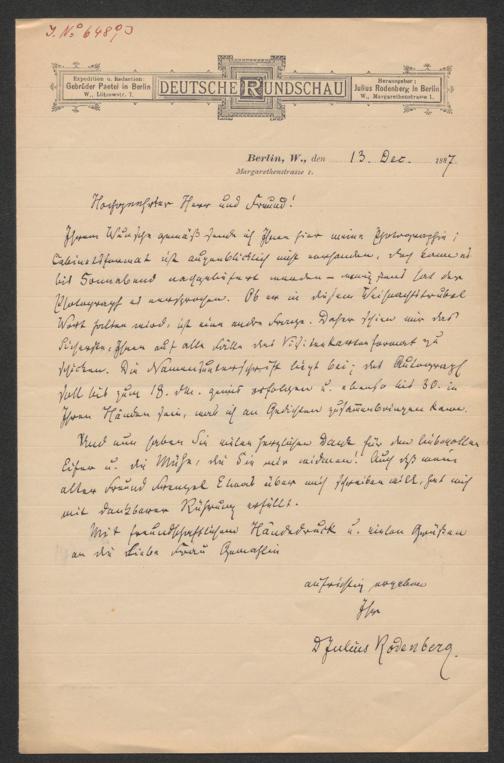 J. No 6489
Expedition u. Redaction:
Gebrüder Paetel in Berlin
W., Lützowstr. 7.
DEUTSCHE RUNDSCHAU
Herausgeber:
Julius Rodenberg in Berlin
W., Margarethenstrasse 1.
Berlin, W., den 13. Dec. 1887.
Margarethenstrasse 1.
Hochgeehrter Herr und Freund!
Ihrem Wunsche gemäß sende ich Ihnen hier meine Photographie;
Cabinetsformat ist augenblicklich nicht vorhanden, doch kann es
bis Sonnabend nachgeliefert werden – wenigstens hat der
Photograph es versprochen. Ob er in diesem Weihnachtstrubel
Wort halten wird, ist eine andre Frage. Daher schien mir das
Sicherste, Ihnen auf alle Fälle das Visitenkartenformat zu
schicken. Die Namensunterschrift liegt bei; das Autograph
soll bis zum 18. dM. gewiß erfolgen u. ebenso bis 30. in
Ihren Händen sein, was ich an Gedichten zusammenbringen kann.
Und nun haben Sie vielen herzlichen Dank für den liebevollen
Eifer u. die Mühe, die Sie mir widmen! Auch daß mein
alter Freund Frenzel Etwas über mich schreiben will, hat mich
mit dankbarer Rührung erfüllt.
Mit freundschaftlichem Händedruck u. vielen Grüßen
an die liebe Frau Gemahlin
aufrichtig ergeben
Ihr
Dr Julius Rodenberg.